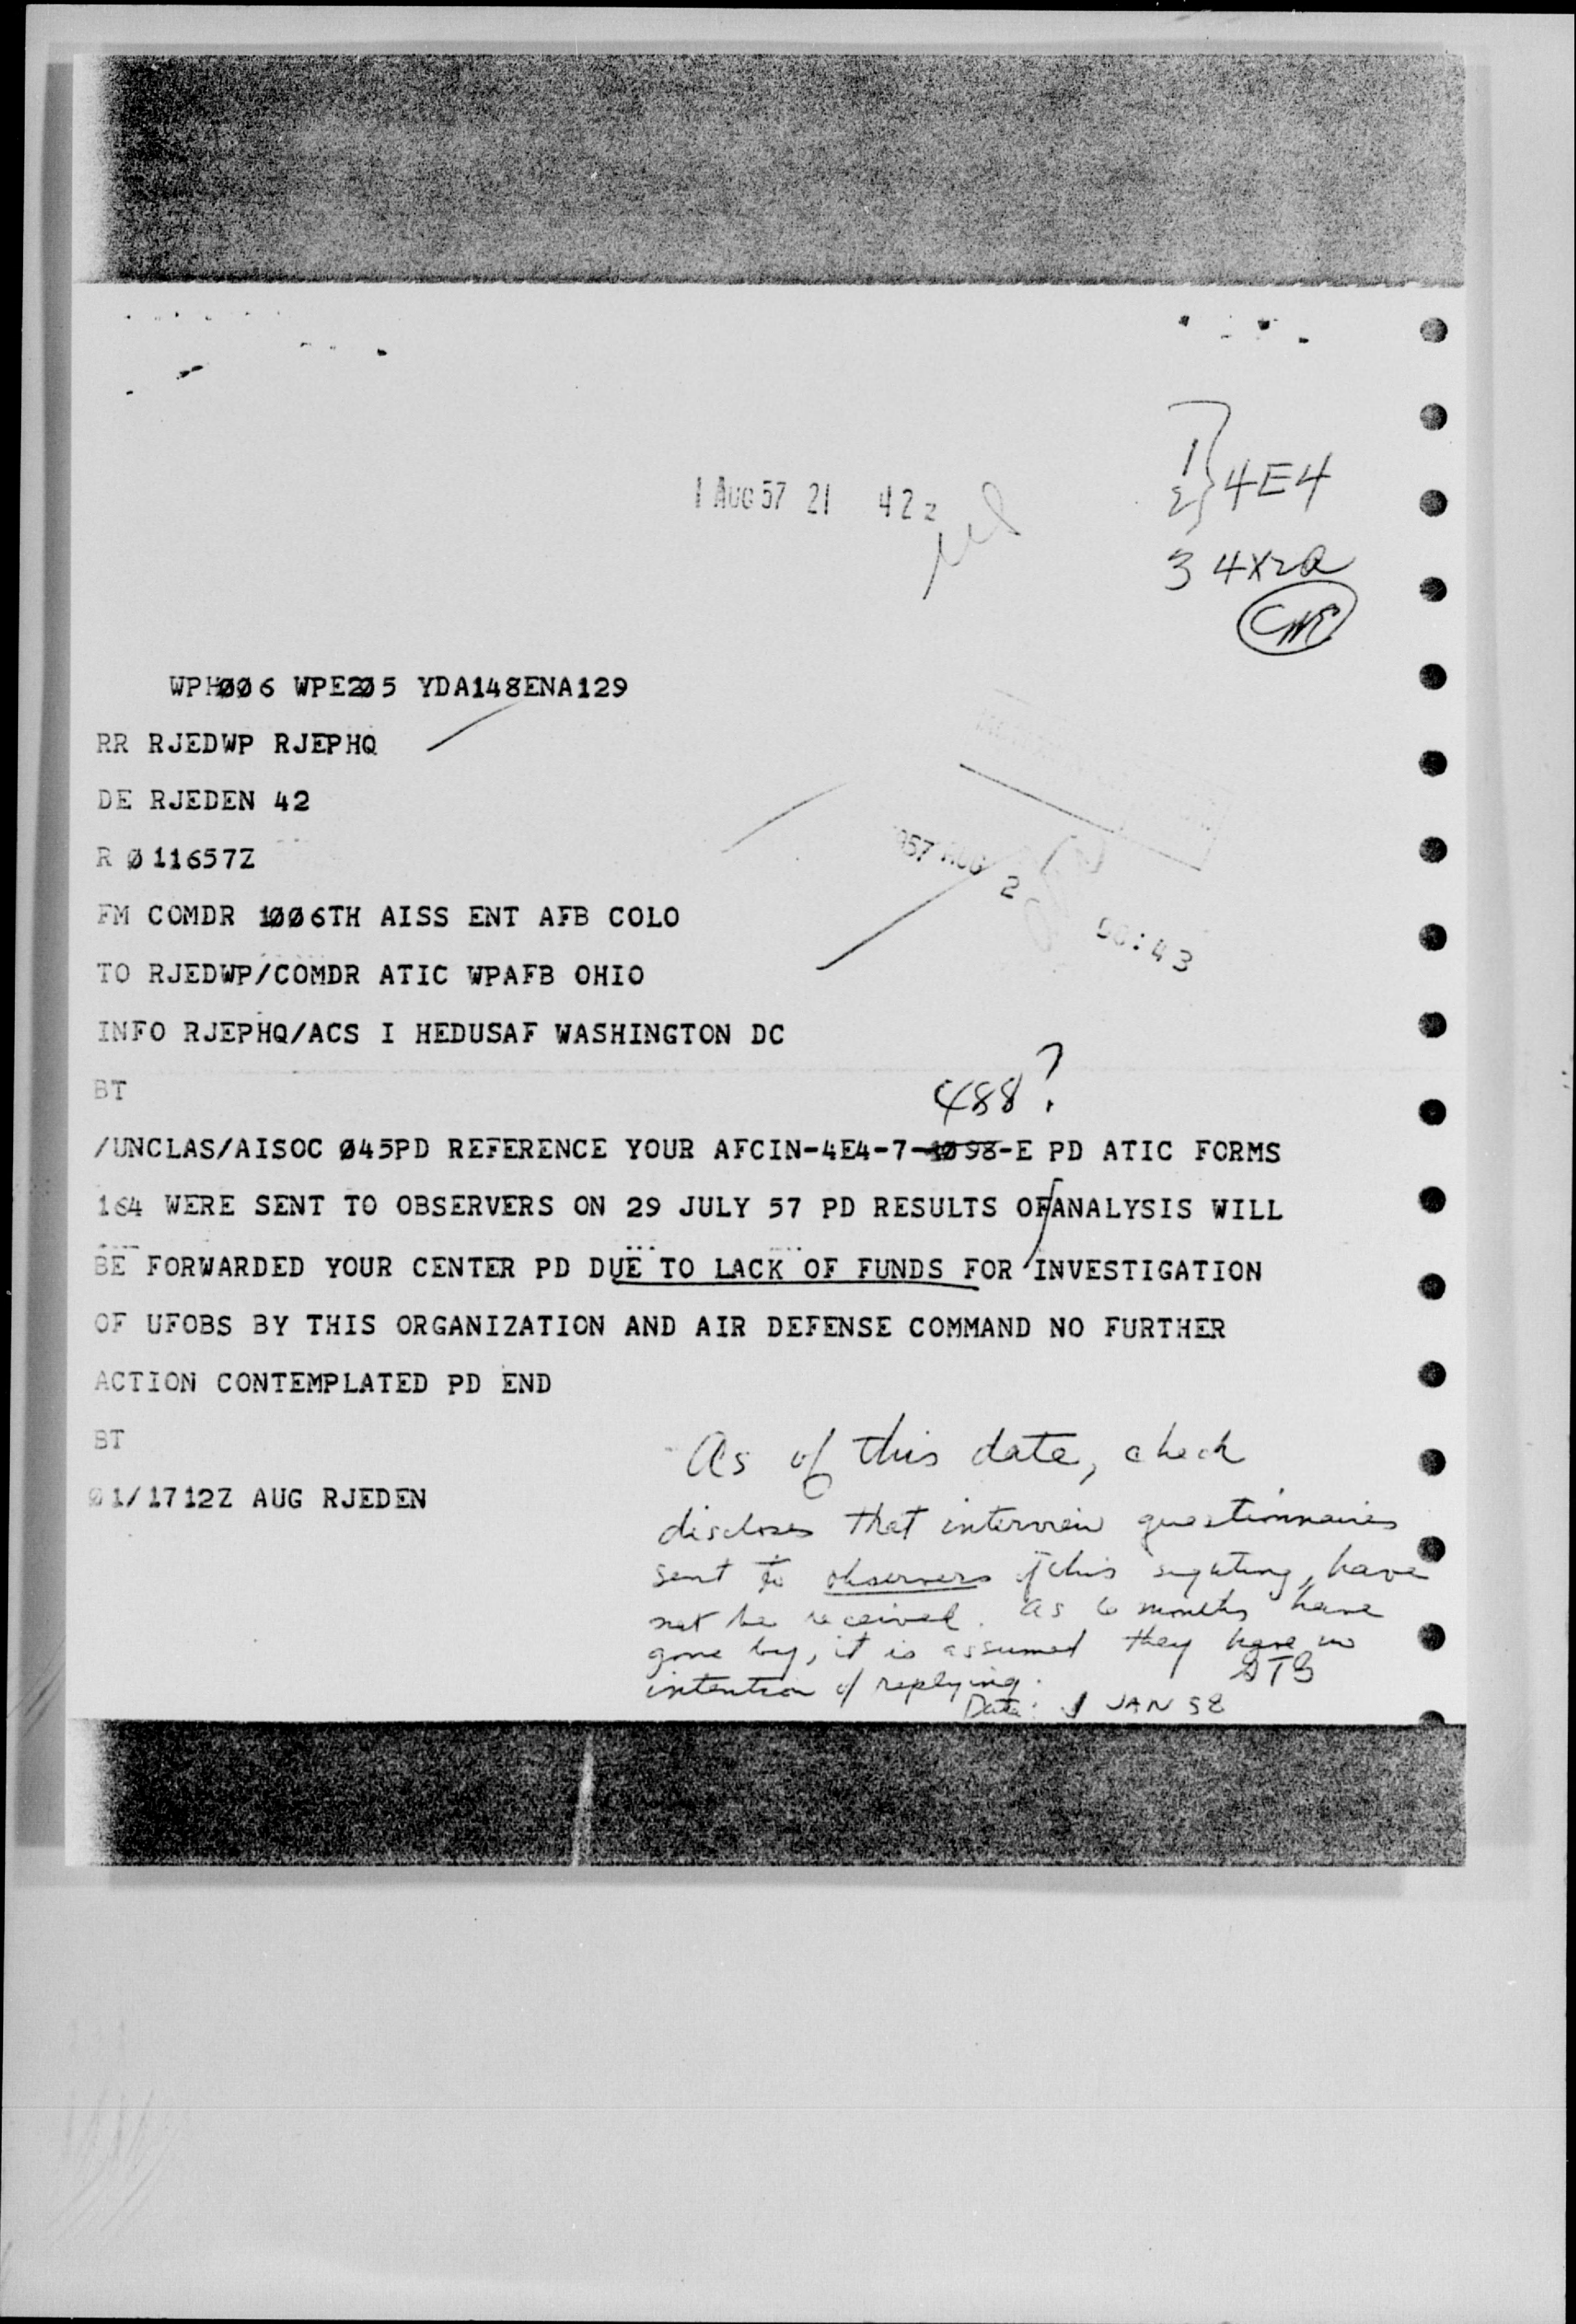 1 AUG 57 21 42z
1
2 } 4E4
3 4X2a
WPH006 WPE205 YDA148ENA129
RR RJEDWP RJEPHQ
DE RJEDEN 42
R Ø11657Z
FM COMDR 1ØØ6TH AISS ENT AFB COLO
TO RJEDWP/COMDR ATIC WPAFB OHIO
INFO RJEPHQ/ACS I HEDUSAF WASHINGTON DC
1957 AUG 2 00:43
BT
488?
/UNCLAS/AISOC Ø45PD REFERENCE YOUR AFCIN-4E4-7-1Ø98-E PD ATIC FORMS
164 WERE SENT TO OBSERVERS ON 29 JULY 57 PD RESULTS OF/ANALYSIS WILL
BE FORWARDED YOUR CENTER PD DUE TO LACK OF FUNDS FOR INVESTIGATION
OF UFOBS BY THIS ORGANIZATION AND AIR DEFENSE COMMAND NO FURTHER
ACTION CONTEMPLATED PD END
BT
Ø1/1712Z AUG RJEDEN
As of this date, check
discloses that interview questionnaires
sent to observers of this sighting, have
not be received. As 6 months have
gone by, it is assumed they have no
intention of replying. GTG
Date: 1 JAN 58